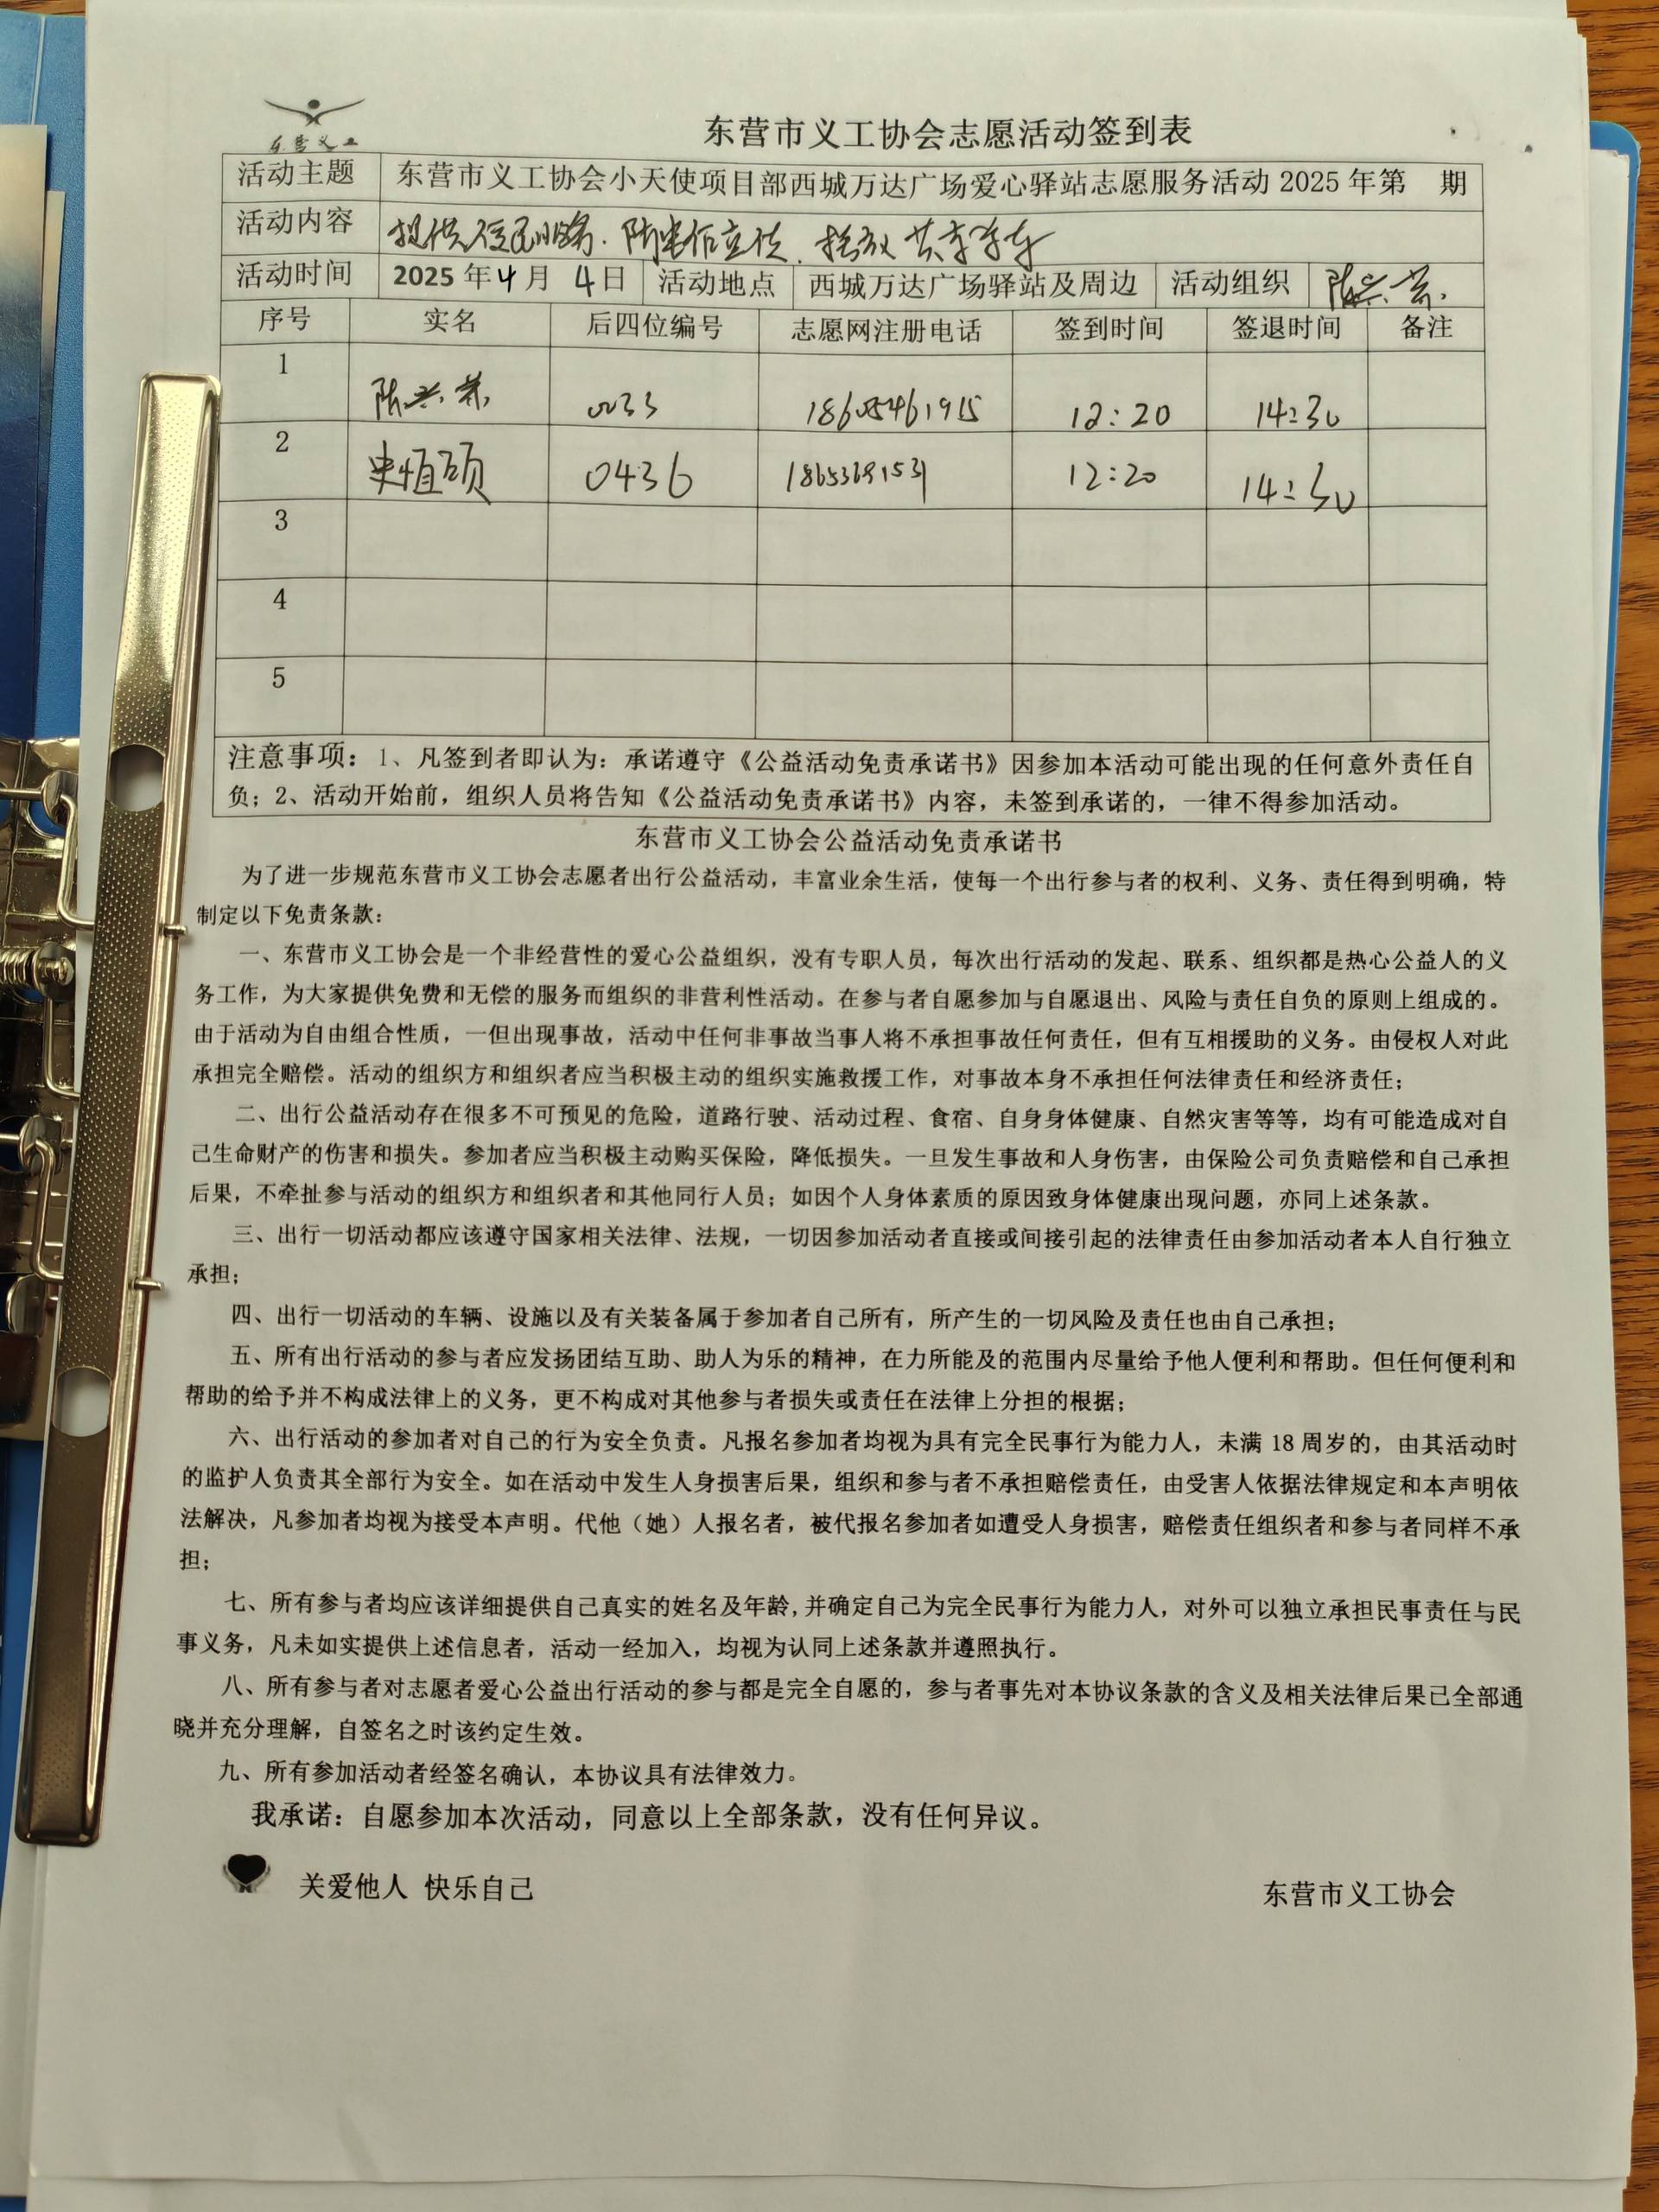 东营义工
东营市义工协会志愿活动签到表
活动主题 东营市义工协会小天使项目部西城万达广场爱心驿站志愿服务活动 2025 年第 期
活动内容 提供便民服务. 摆放 共享单车
活动时间 2025 年 4 月 4 日 活动地点 西城万达广场驿站及周边 活动组织 陈兴
序号 实名 后四位编号 志愿网注册电话 签到时间 签退时间 备注
1 陈兴 0033 18605461915 12:20 14:30
2 史恒硕 0436 12:20 14:30
3
4
5
注意事项：1、凡签到者即认为：承诺遵守《公益活动免责承诺书》因参加本活动可能出现的任何意外责任自
负；2、活动开始前，组织人员将告知《公益活动免责承诺书》内容，未签到承诺的，一律不得参加活动。
东营市义工协会公益活动免责承诺书
为了进一步规范东营市义工协会志愿者出行公益活动，丰富业余生活，使每一个出行参与者的权利、义务、责任得到明确，特
制定以下免责条款：
一、东营市义工协会是一个非经营性的爱心公益组织，没有专职人员，每次出行活动的发起、联系、组织都是热心公益人的义
务工作，为大家提供免费和无偿的服务而组织的非营利性活动。在参与者自愿参加与自愿退出、风险与责任自负的原则上组成的。
由于活动为自由组合性质，一但出现事故，活动中任何非事故当事人将不承担事故任何责任，但有互相援助的义务。由侵权人对此
承担完全赔偿。活动的组织方和组织者应当积极主动的组织实施救援工作，对事故本身不承担任何法律责任和经济责任；
二、出行公益活动存在很多不可预见的危险，道路行驶、活动过程、食宿、自身身体健康、自然灾害等等，均有可能造成对自
己生命财产的伤害和损失。参加者应当积极主动购买保险，降低损失。一旦发生事故和人身伤害，由保险公司负责赔偿和自己承担
后果，不牵扯参与活动的组织方和组织者和其他同行人员；如因个人身体素质的原因致身体健康出现问题，亦同上述条款。
三、出行一切活动都应该遵守国家相关法律、法规，一切因参加活动者直接或间接引起的法律责任由参加活动者本人自行独立
承担；
四、出行一切活动的车辆、设施以及有关装备属于参加者自己所有，所产生的一切风险及责任也由自己承担；
五、所有出行活动的参与者应发扬团结互助、助人为乐的精神，在力所能及的范围内尽量给予他人便利和帮助。但任何便利和
帮助的给予并不构成法律上的义务，更不构成对其他参与者损失或责任在法律上分担的根据；
六、出行活动的参加者对自己的行为安全负责。凡报名参加者均视为具有完全民事行为能力人，未满 18 周岁的，由其活动时
的监护人负责其全部行为安全。如在活动中发生人身损害后果，组织和参与者不承担赔偿责任，由受害人依据法律规定和本声明依
法解决，凡参加者均视为接受本声明。代他（她）人报名者，被代报名参加者如遭受人身损害，赔偿责任组织者和参与者同样不承
担；
七、所有参与者均应该详细提供自己真实的姓名及年龄,并确定自己为完全民事行为能力人，对外可以独立承担民事责任与民
事义务，凡未如实提供上述信息者，活动一经加入，均视为认同上述条款并遵照执行。
八、所有参与者对志愿者爱心公益出行活动的参与都是完全自愿的，参与者事先对本协议条款的含义及相关法律后果已全部通
晓并充分理解，自签名之时该约定生效。
九、所有参加活动者经签名确认，本协议具有法律效力。
我承诺：自愿参加本次活动，同意以上全部条款，没有任何异议。
关爱他人 快乐自己 东营市义工协会